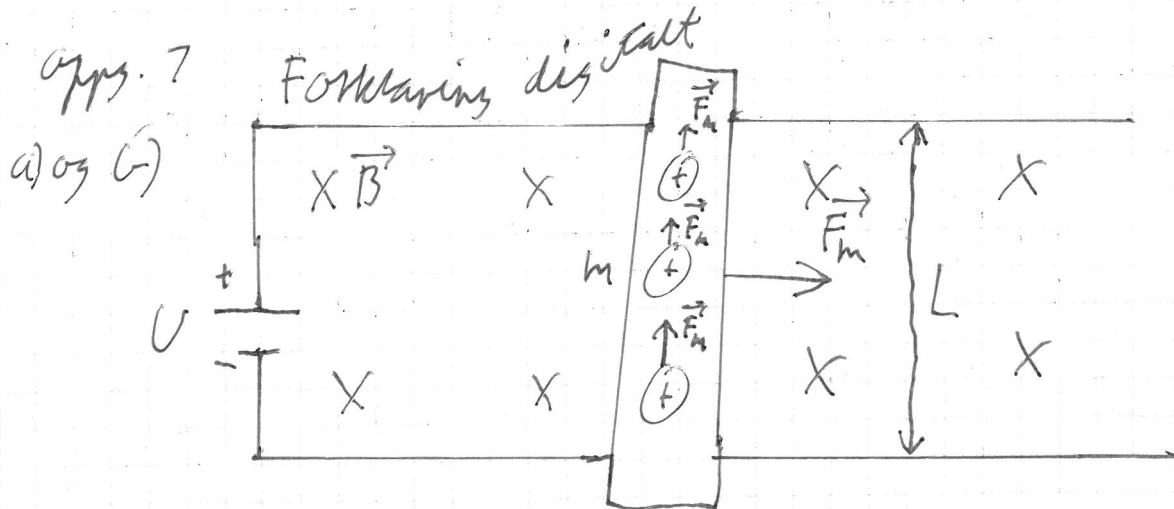 oppg. 7 Forklaring digitalt
a) og b)
X B X X X
F_m
F_m
F_m
m
F_m
+
U
-
+
+
+
L
X X X X